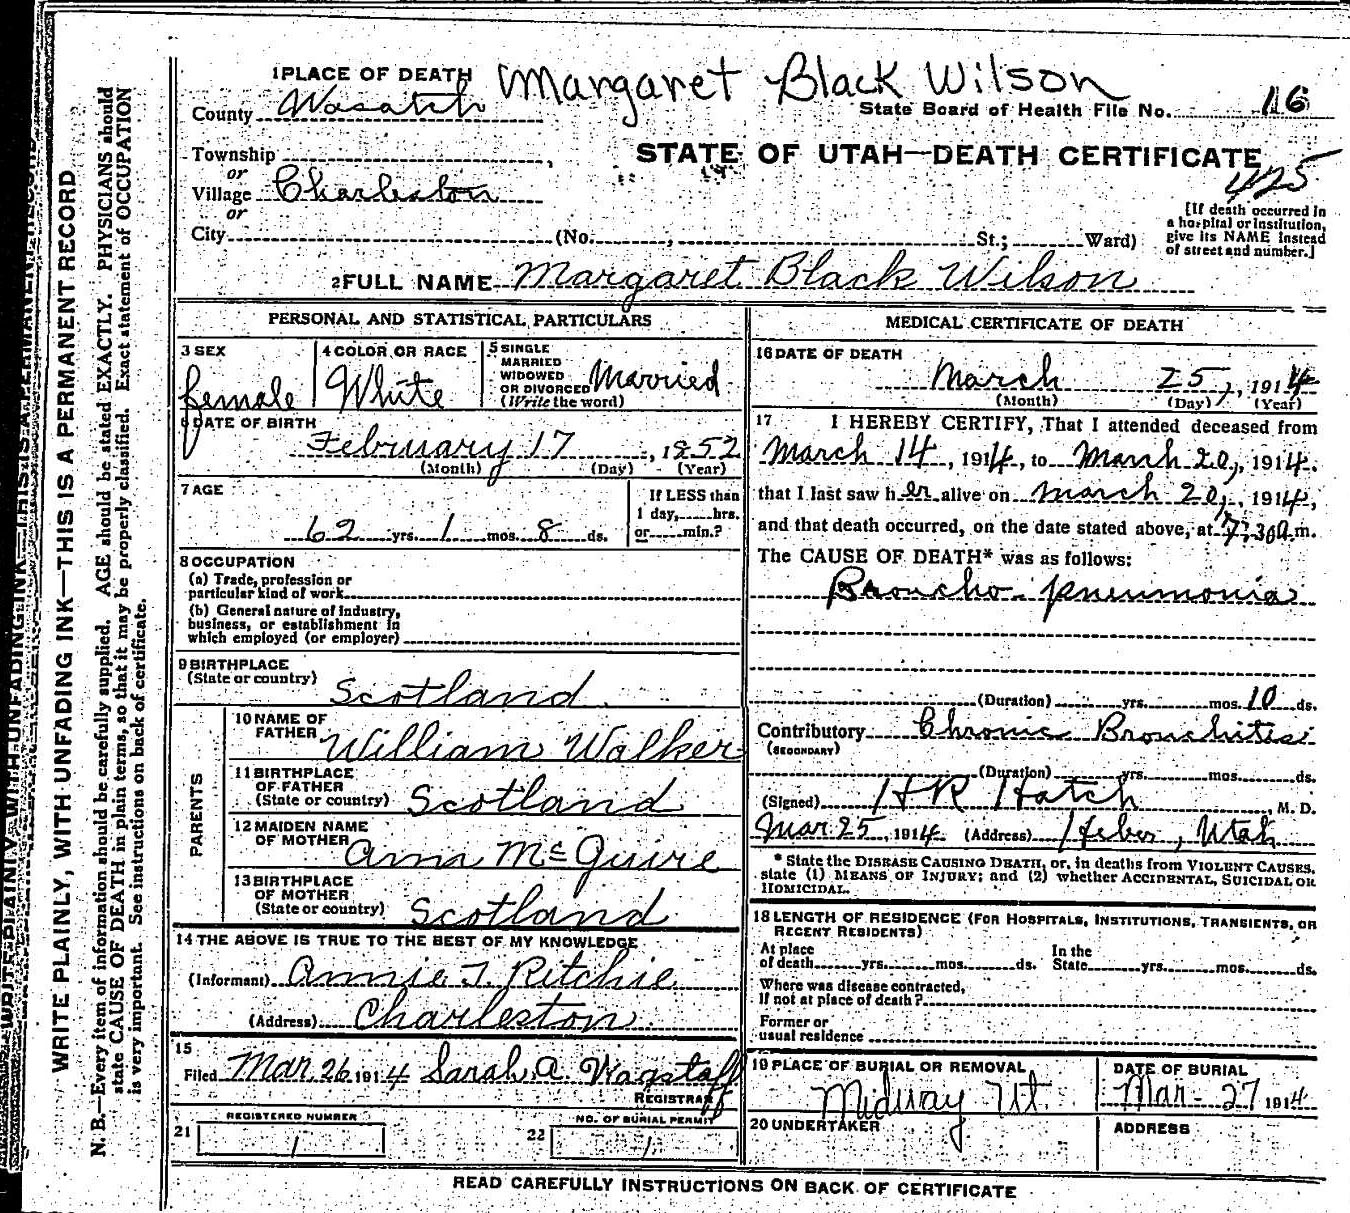 1 PLACE OF DEATH Margaret Black Wilson
County Wasatch
State Board of Health File No. 16
Township
or
Village Charleston
or
City (No. , St.; Ward)
STATE OF UTAH—DEATH CERTIFICATE
425
[If death occurred in
a hospital or institution,
give its NAME instead
of street and number.]
2 FULL NAME Margaret Black Wilson
PERSONAL AND STATISTICAL PARTICULARS
3 SEX
female
4 COLOR OR RACE
White
5 SINGLE
MARRIED
WIDOWED
OR DIVORCED
(Write the word)
Married
6 DATE OF BIRTH
February 17, 1852
(Month) (Day) (Year)
7 AGE
62 yrs. 1 mos. 8 ds.
If LESS than
1 day, hrs.
or min.?
8 OCCUPATION
(a) Trade, profession or
particular kind of work
(b) General nature of industry,
business, or establishment in
which employed (or employer)
9 BIRTHPLACE
(State or country) Scotland
PARENTS
10 NAME OF
FATHER William Walker
11 BIRTHPLACE
OF FATHER
(State or country) Scotland
12 MAIDEN NAME
OF MOTHER Ann McGuire
13 BIRTHPLACE
OF MOTHER
(State or country) Scotland
14 THE ABOVE IS TRUE TO THE BEST OF MY KNOWLEDGE
(Informant) Annie T. Ritchie
(Address) Charleston
15
Filed Mar. 26 1914 Sarah A. Wagstaff
REGISTRAR
REGISTERED NUMBER
21 1
NO. OF BURIAL PERMIT
22 1
MEDICAL CERTIFICATE OF DEATH
16 DATE OF DEATH
March 25, 1914
(Month) (Day) (Year)
17 I HEREBY CERTIFY, That I attended deceased from
March 14, 1914, to March 20, 1914.
that I last saw her alive on March 20, 1914,
and that death occurred, on the date stated above, at 7:30 a.m.
The CAUSE OF DEATH* was as follows:
Broncho-pneumonia
(Duration) yrs. mos. 10 ds.
Contributory Chronic Bronchitis
(SECONDARY)
(Duration) yrs. mos. ds.
(Signed) HR Hatch, M. D.
Mar 25, 1914. (Address) Heber, Utah
* State the DISEASE CAUSING DEATH, or, in deaths from VIOLENT CAUSES,
state (1) MEANS OF INJURY; and (2) whether ACCIDENTAL, SUICIDAL OR
HOMICIDAL.
18 LENGTH OF RESIDENCE (FOR HOSPITALS, INSTITUTIONS, TRANSIENTS, OR
RECENT RESIDENTS)
At place In the
of death yrs. mos. ds. State yrs. mos. ds.
Where was disease contracted,
if not at place of death?
Former or
usual residence
19 PLACE OF BURIAL OR REMOVAL
Midway Ut.
DATE OF BURIAL
Mar- 27 1914
20 UNDERTAKER
ADDRESS
READ CAREFULLY INSTRUCTIONS ON BACK OF CERTIFICATE
WRITE PLAINLY, WITH UNFADING INK—THIS IS A PERMANENT RECORD
N. B.—Every item of information should be carefully supplied. AGE should be stated EXACTLY. PHYSICIANS should
state CAUSE OF DEATH in plain terms, so that it may be properly classified. Exact statement of OCCUPATION
is very important. See instructions on back of certificate.